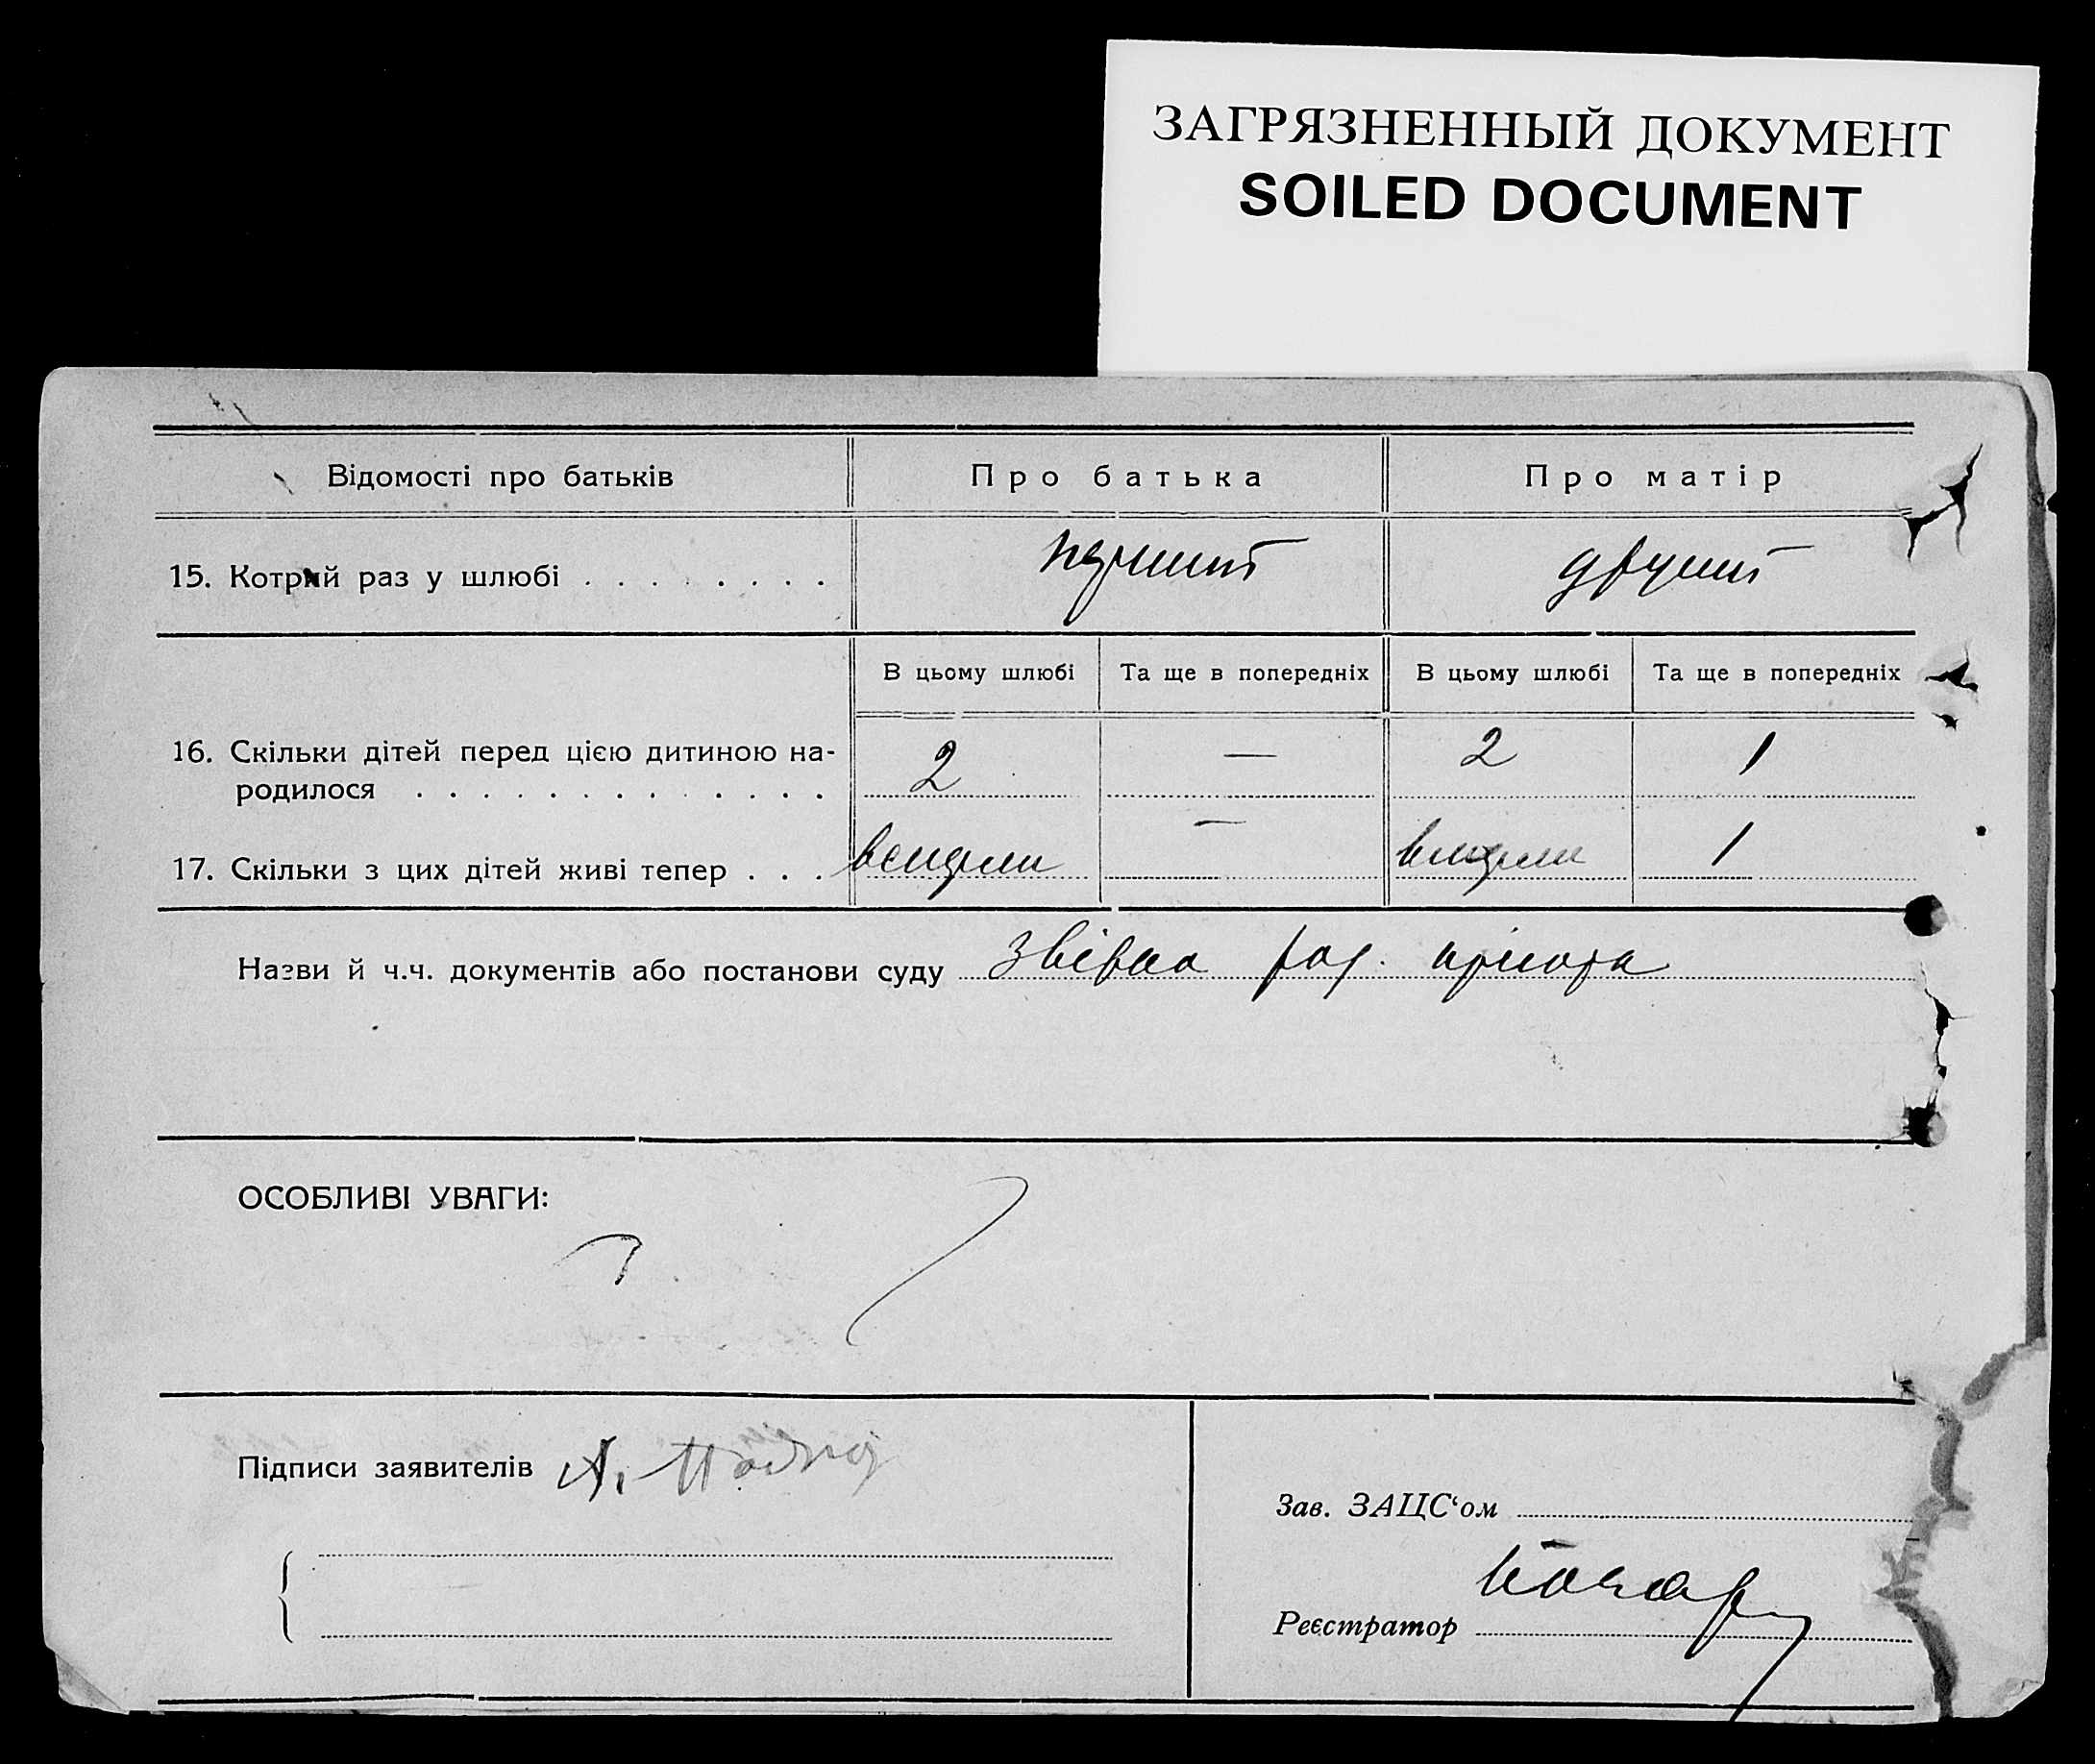 ЗАГРЯЗНЕННЫЙ ДОКУМЕНТ
SOILED DOCUMENT
Відомості про батьків Про батька Про матір
15. Котрий раз у шлюбі . . . . . . . . перший другий
В цьому шлюбі Та ще в попередніх В цьому шлюбі Та ще в попередніх
16. Скільки дітей перед цією дитиною на-
родилося . . . . . . . . . . . . . 2 — 2 1
17. Скільки з цих дітей живі тепер . . . вмерли — вмерли 1
Назви й ч.ч. документів або постанови суду
ОСОБЛИВІ УВАГИ:
Підписи заявителів А.
Зав. ЗАЦС‘ом
Реєстратор